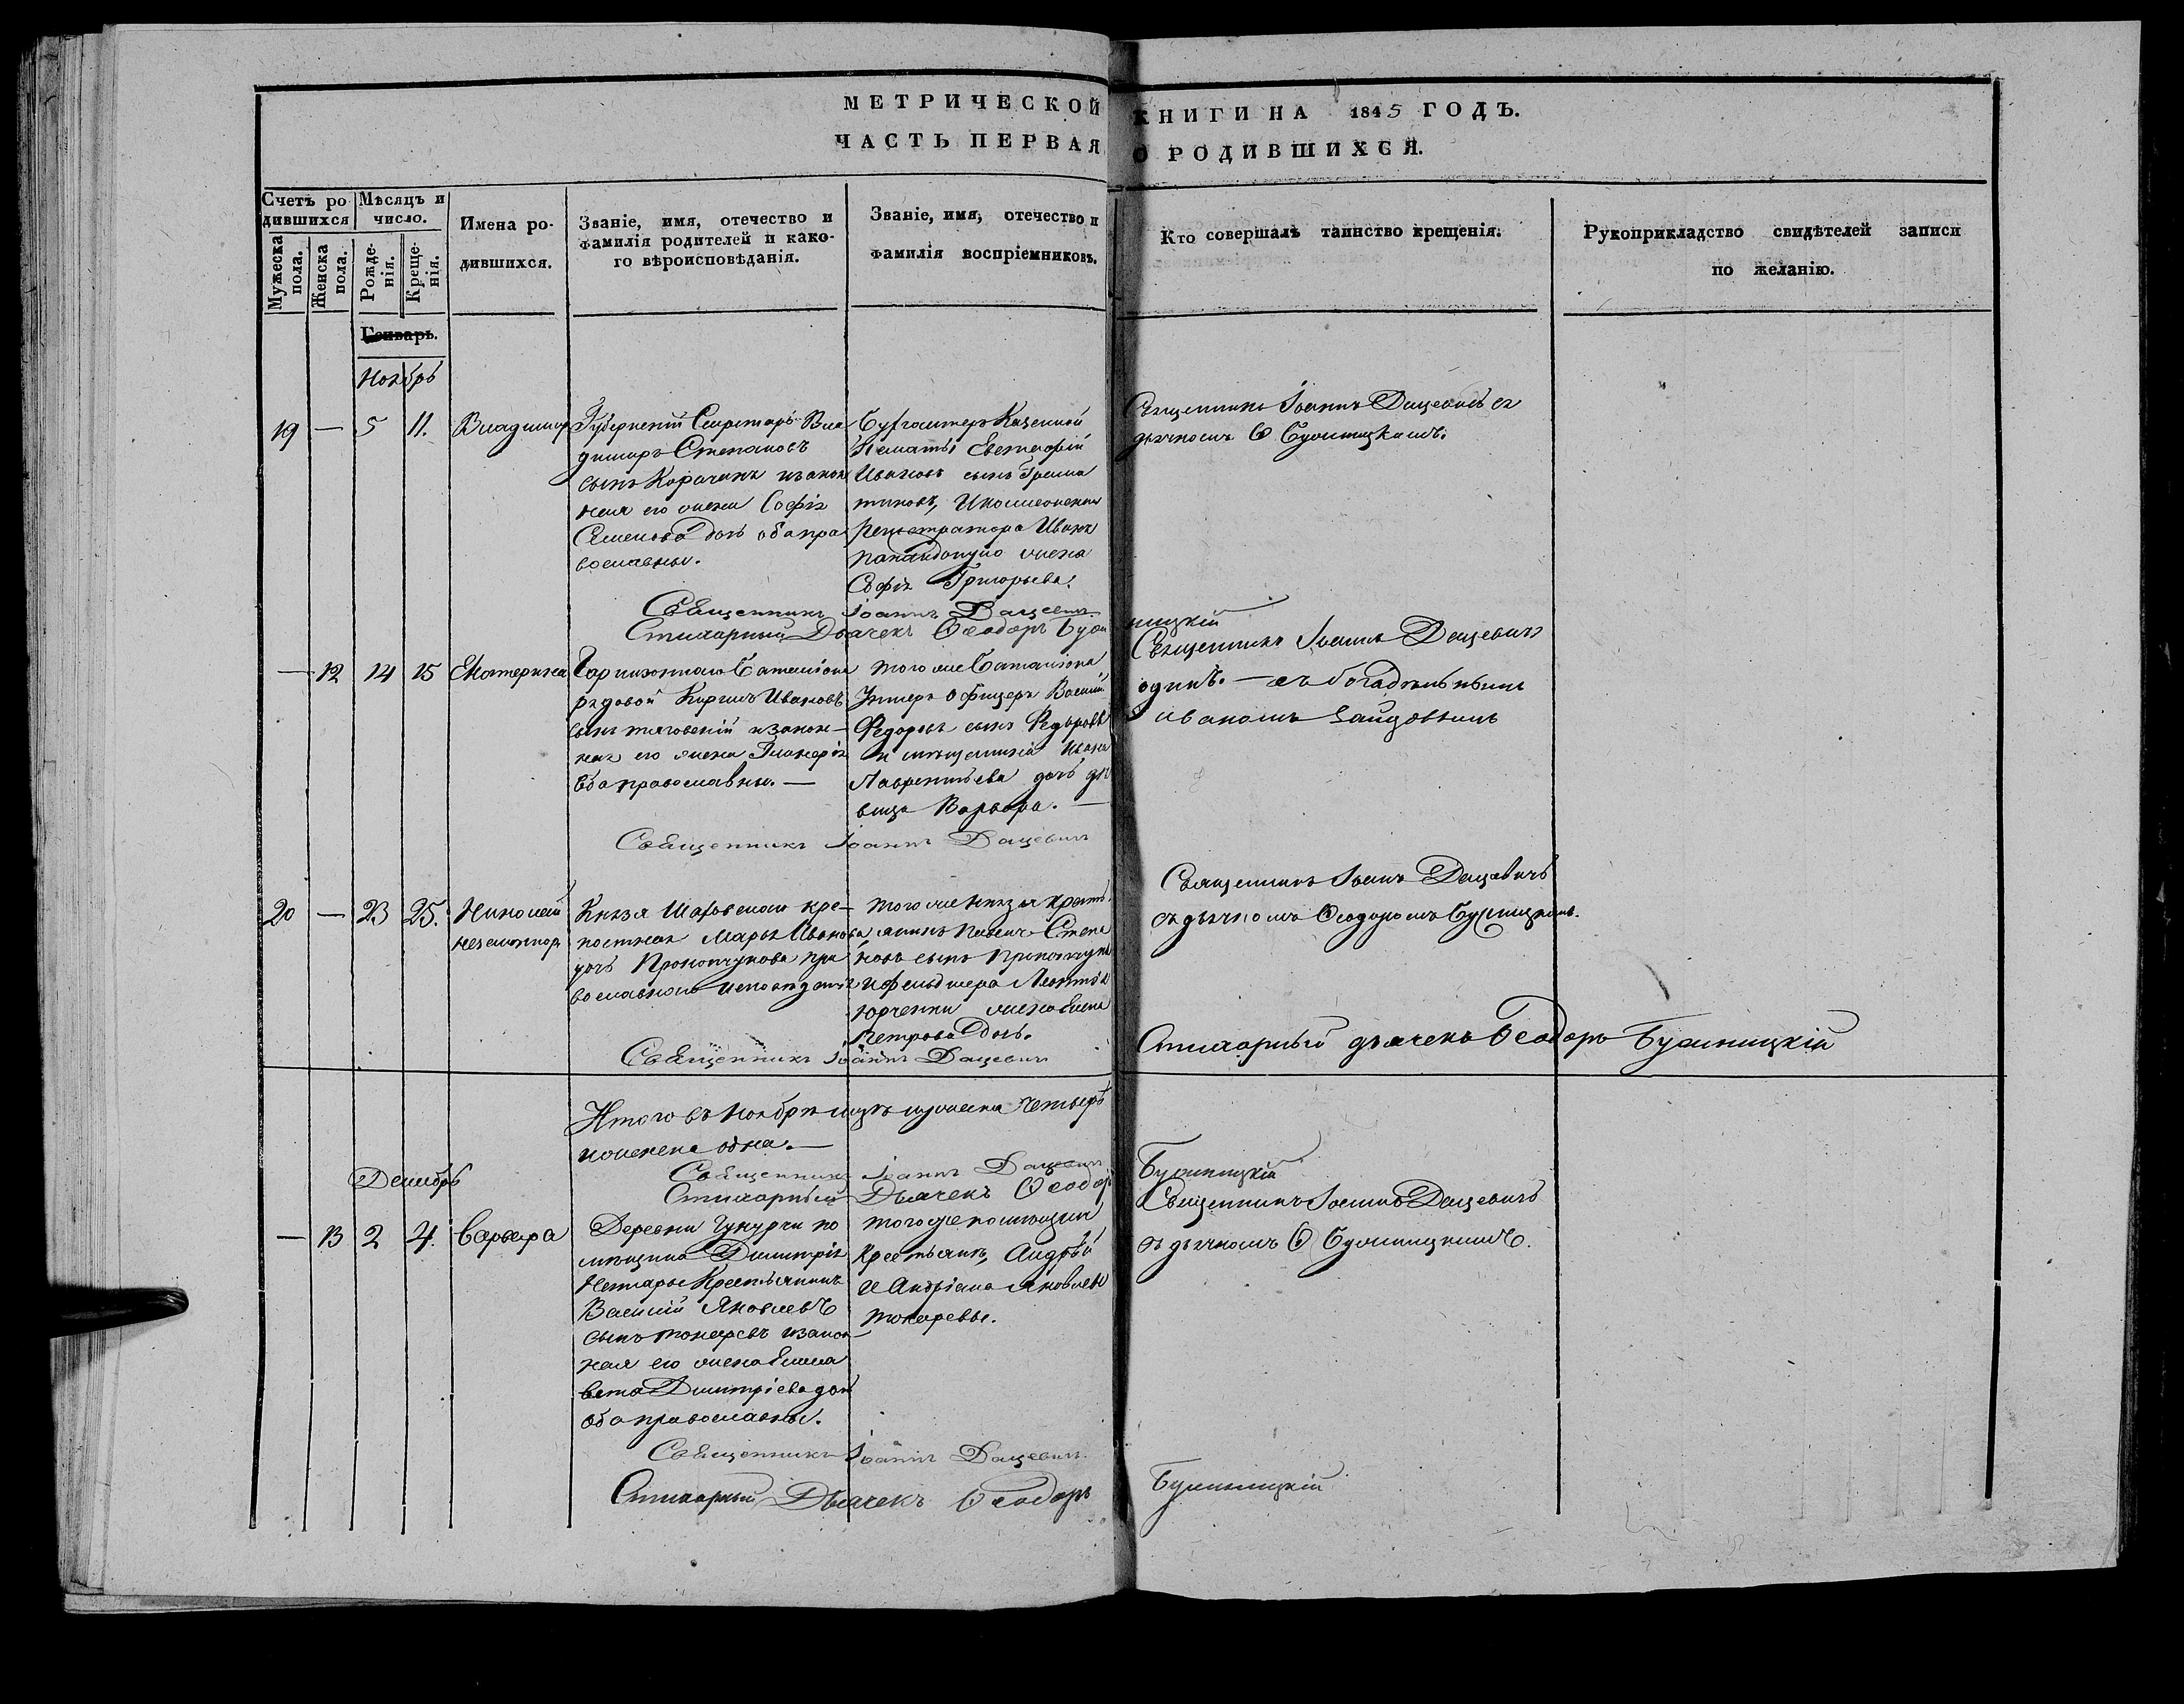 МЕТРИЧЕСКОЙ КНИГИ НА 1845 ГОДЪ.
ЧАСТЬ ПЕРВАЯ О РОДИВШИХСЯ.
Счетъ ро-
дившихся
Мужеска пола.
Женска пола.
Мѣсяцъ и
число.
Рожде-
нія.
Креще-
нія.
Имена ро-
дившихся.
Званіе, имя, отечество и
фамилія родителей и како-
го вѣроисповѣданія.
Званіе, имя, отечество и
фамилія воспріемниковъ.
Кто совершалъ таинство крещенія.
Рукоприкладство свидѣтелей записи
по желанію.
Генварь.
Ноябрь
19 — 5 11. Владимиръ
Губернскій Секретарь Вла
димиръ Степановъ
сынъ Корачанъ изакон
ная его жена Софія
Семенова дочь оба пра
вославны.
Бухгалтеръ Казенной
Палаты Евстафій
Ивановъ сынъ
Регистратора Ивана
жена
Софія Григорьева.
Священникъ Іоаннъ Дацевичъ съ
дьячкомъ Ѳ
Священникъ Іоаннъ Дацевичъ
Стихарный Дьячекъ Ѳеодоръ
— 12 14 15 Екатерина
Гарнизоннаго Баталіона
рядовой Кирилъ Ивановъ
сынъ изакон-
ная его жена Гликерія
Оба православны. —
того же Баталіона
Унтеръ Офицеръ Василій
Федоровъ сынъ Федоровъ
и мѣщанина Ивана
Лаврентьева дочь дѣ
вица Варвара. —
Священникъ Іоаннъ Дацевичъ
одинъ. — съ богадѣльнымъ
Иваномъ
Священникъ Іоаннъ Дацевичъ
20 — 23 25. Николай
незаконнор.
Князя кре-
постная Марья Иванова
дочь Прокопчукова пра
вославнаго исповѣданія
того же Князя крестья
нинъ Павелъ Степа
новъ сынъ Прокопчукъ
и фельдшера Леонтія
Юрченки жена
Петрова дочь.
Священникъ Іоаннъ Дацевичъ
съ дьячкомъ Ѳеодоромъ
Священникъ Іоаннъ Дацевичъ
Стихарный дьячекъ Ѳеодоръ
Итого въ Ноябрѣ мужеска четыре
и женска одна. —
Священникъ Іоаннъ Дацевичъ
Стихарный Дьячекъ Ѳеодоръ
Декабрь
— 13 2 4. Варвара
Деревни по
мѣщика Димитрія
Крестьянинъ
Василій Яковлевъ
сынъ Токаревъ изакон-
ная его жена Елиса
вета Димитріева дочь
Оба православны.
того же помѣщика
Крестьяне, Андрей
и Андріана Яковлевы
Токаревы.
Священникъ Іоаннъ Дацевичъ
съ дьячкомъ Ѳ
Священникъ Іоаннъ Дацевичъ
Стихарный Дьячекъ Ѳеодоръ